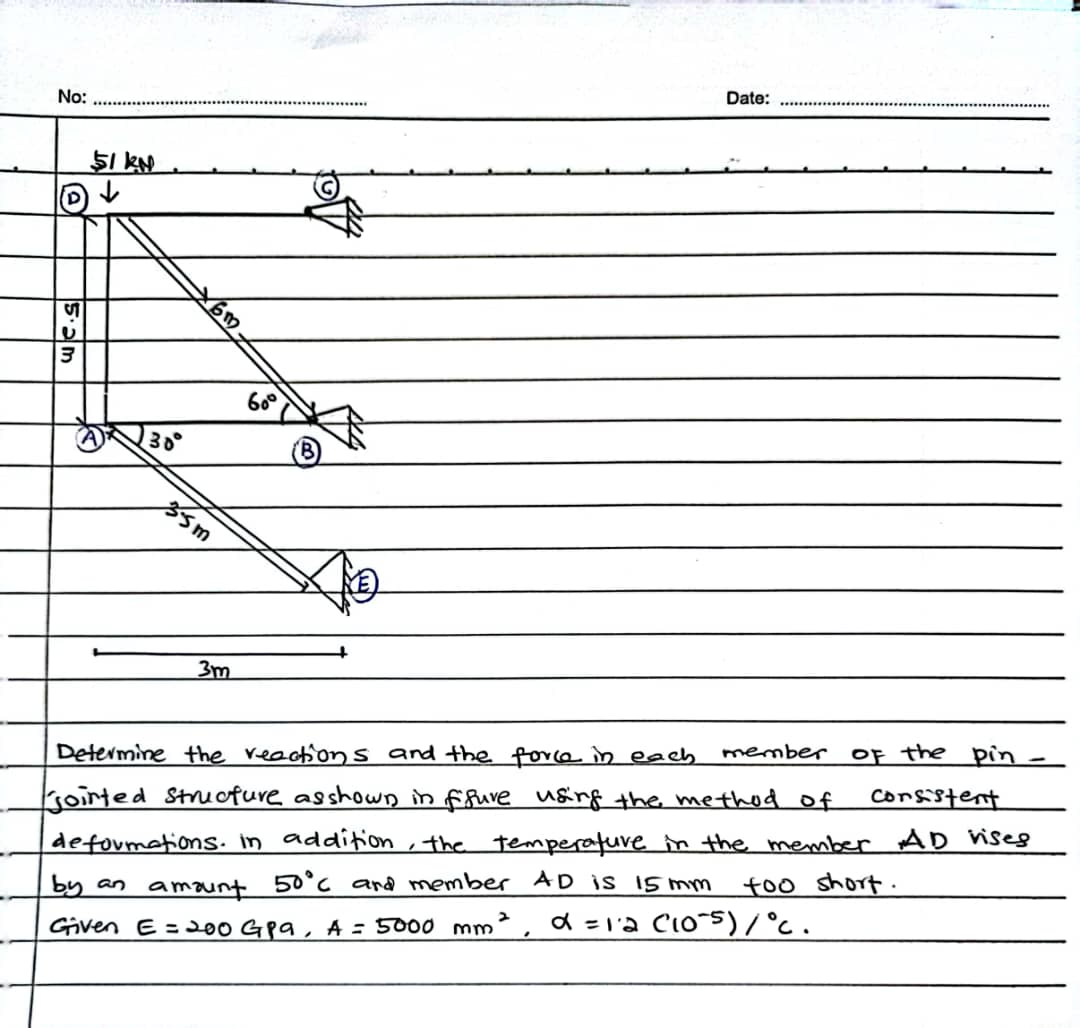 No:
Date:
51 kN
D
C
5.2m
6m
60°
A
30°
B
3.5m
E
3m
Determine the reactions and the force in each member of the pin -
jointed structure as shown in figure using the method of consistent
deformations. in addition, the temperature in the member AD rises
by an amount 50°C and member AD is 15 mm too short.
Given E = 200 GPa, A = 5000 mm², α = 1.2 (10⁻⁵) / °C.